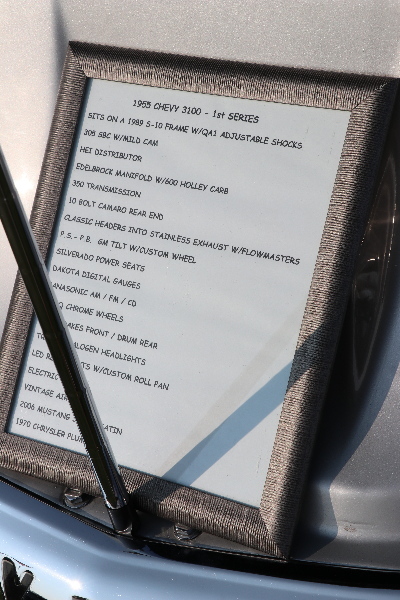 1955 CHEVY 3100 - 1st SERIES
SITS ON A 1989 S-10 FRAME W/QA1 ADJUSTABLE SHOCKS
305 SBC W/MILD CAM
HEI DISTRIBUTOR
EDELBROCK MANIFOLD W/600 HOLLEY CARB
350 TRANSMISSION
10 BOLT CAMARO REAR END
CLASSIC HEADERS INTO STAINLESS EXHAUST W/FLOWMASTERS
P.S.- P.B. GM TILT W/CUSTOM WHEEL
SILVERADO POWER SEATS
DAKOTA DIGITAL GAUGES
ANASONIC AM / FM / CD
CHROME WHEELS
AKES FRONT / DRUM REAR
ALOGEN HEADLIGHTS
LED TS W/CUSTOM ROLL PAN
ELECTRIC
VINTAGE AIR
2006 MUSTANG LATIN
1970 CHRYSLER PLUM